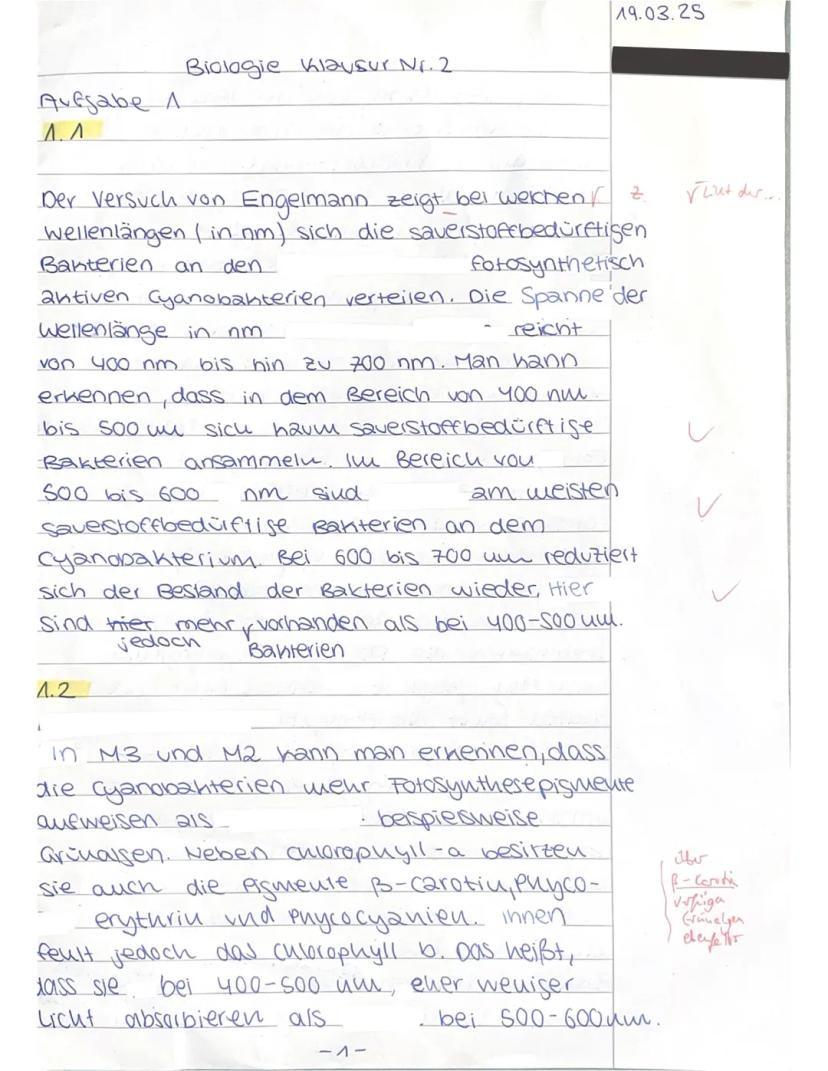 19.03.25
Biologie Klausur Nr. 2
Aufgabe 1
1.1
Der Versuch von Engelmann zeigt bei welchen z. √ Licht der...
Wellenlängen (in nm) sich die sauerstoffbedürftigen
Bakterien an den fotosynthetisch
aktiven Cyanobakterien verteilen. Die Spanne der
Wellenlänge in nm - reicht
von 400 nm bis hin zu 700 nm. Man kann
erkennen, dass in dem Bereich von 400 nm
bis 500 nm sich kaum sauerstoffbedürftige
Bakterien ansammeln. Im Bereich von
500 bis 600 nm sind am meisten
sauerstoffbedürftige Bakterien an dem
Cyanobakterium. Bei 600 bis 700 nm reduziert
sich der Bestand der Bakterien wieder. Hier
sind hier mehr vorhanden als bei 400-500 nm.
jedoch Bakterien
1.2
In M3 und M2 kann man erkennen, dass
die Cyanobakterien mehr Fotosynthesepigmente
aufweisen als beispiesweise
Grünalgen. Neben Chlorophyll-a besitzen
sie auch die Pigmente β-Carotin, Phyco-
erythrin und Phycocyanien. Ihnen
fehlt jedoch das Chlorophyll b. Das heißt,
dass sie bei 400-500 nm, eher weniger
Licht absorbieren als bei 500-600 nm.
über
β-Carotin
verfügen
Grünalgen
ebenfalls
-1-